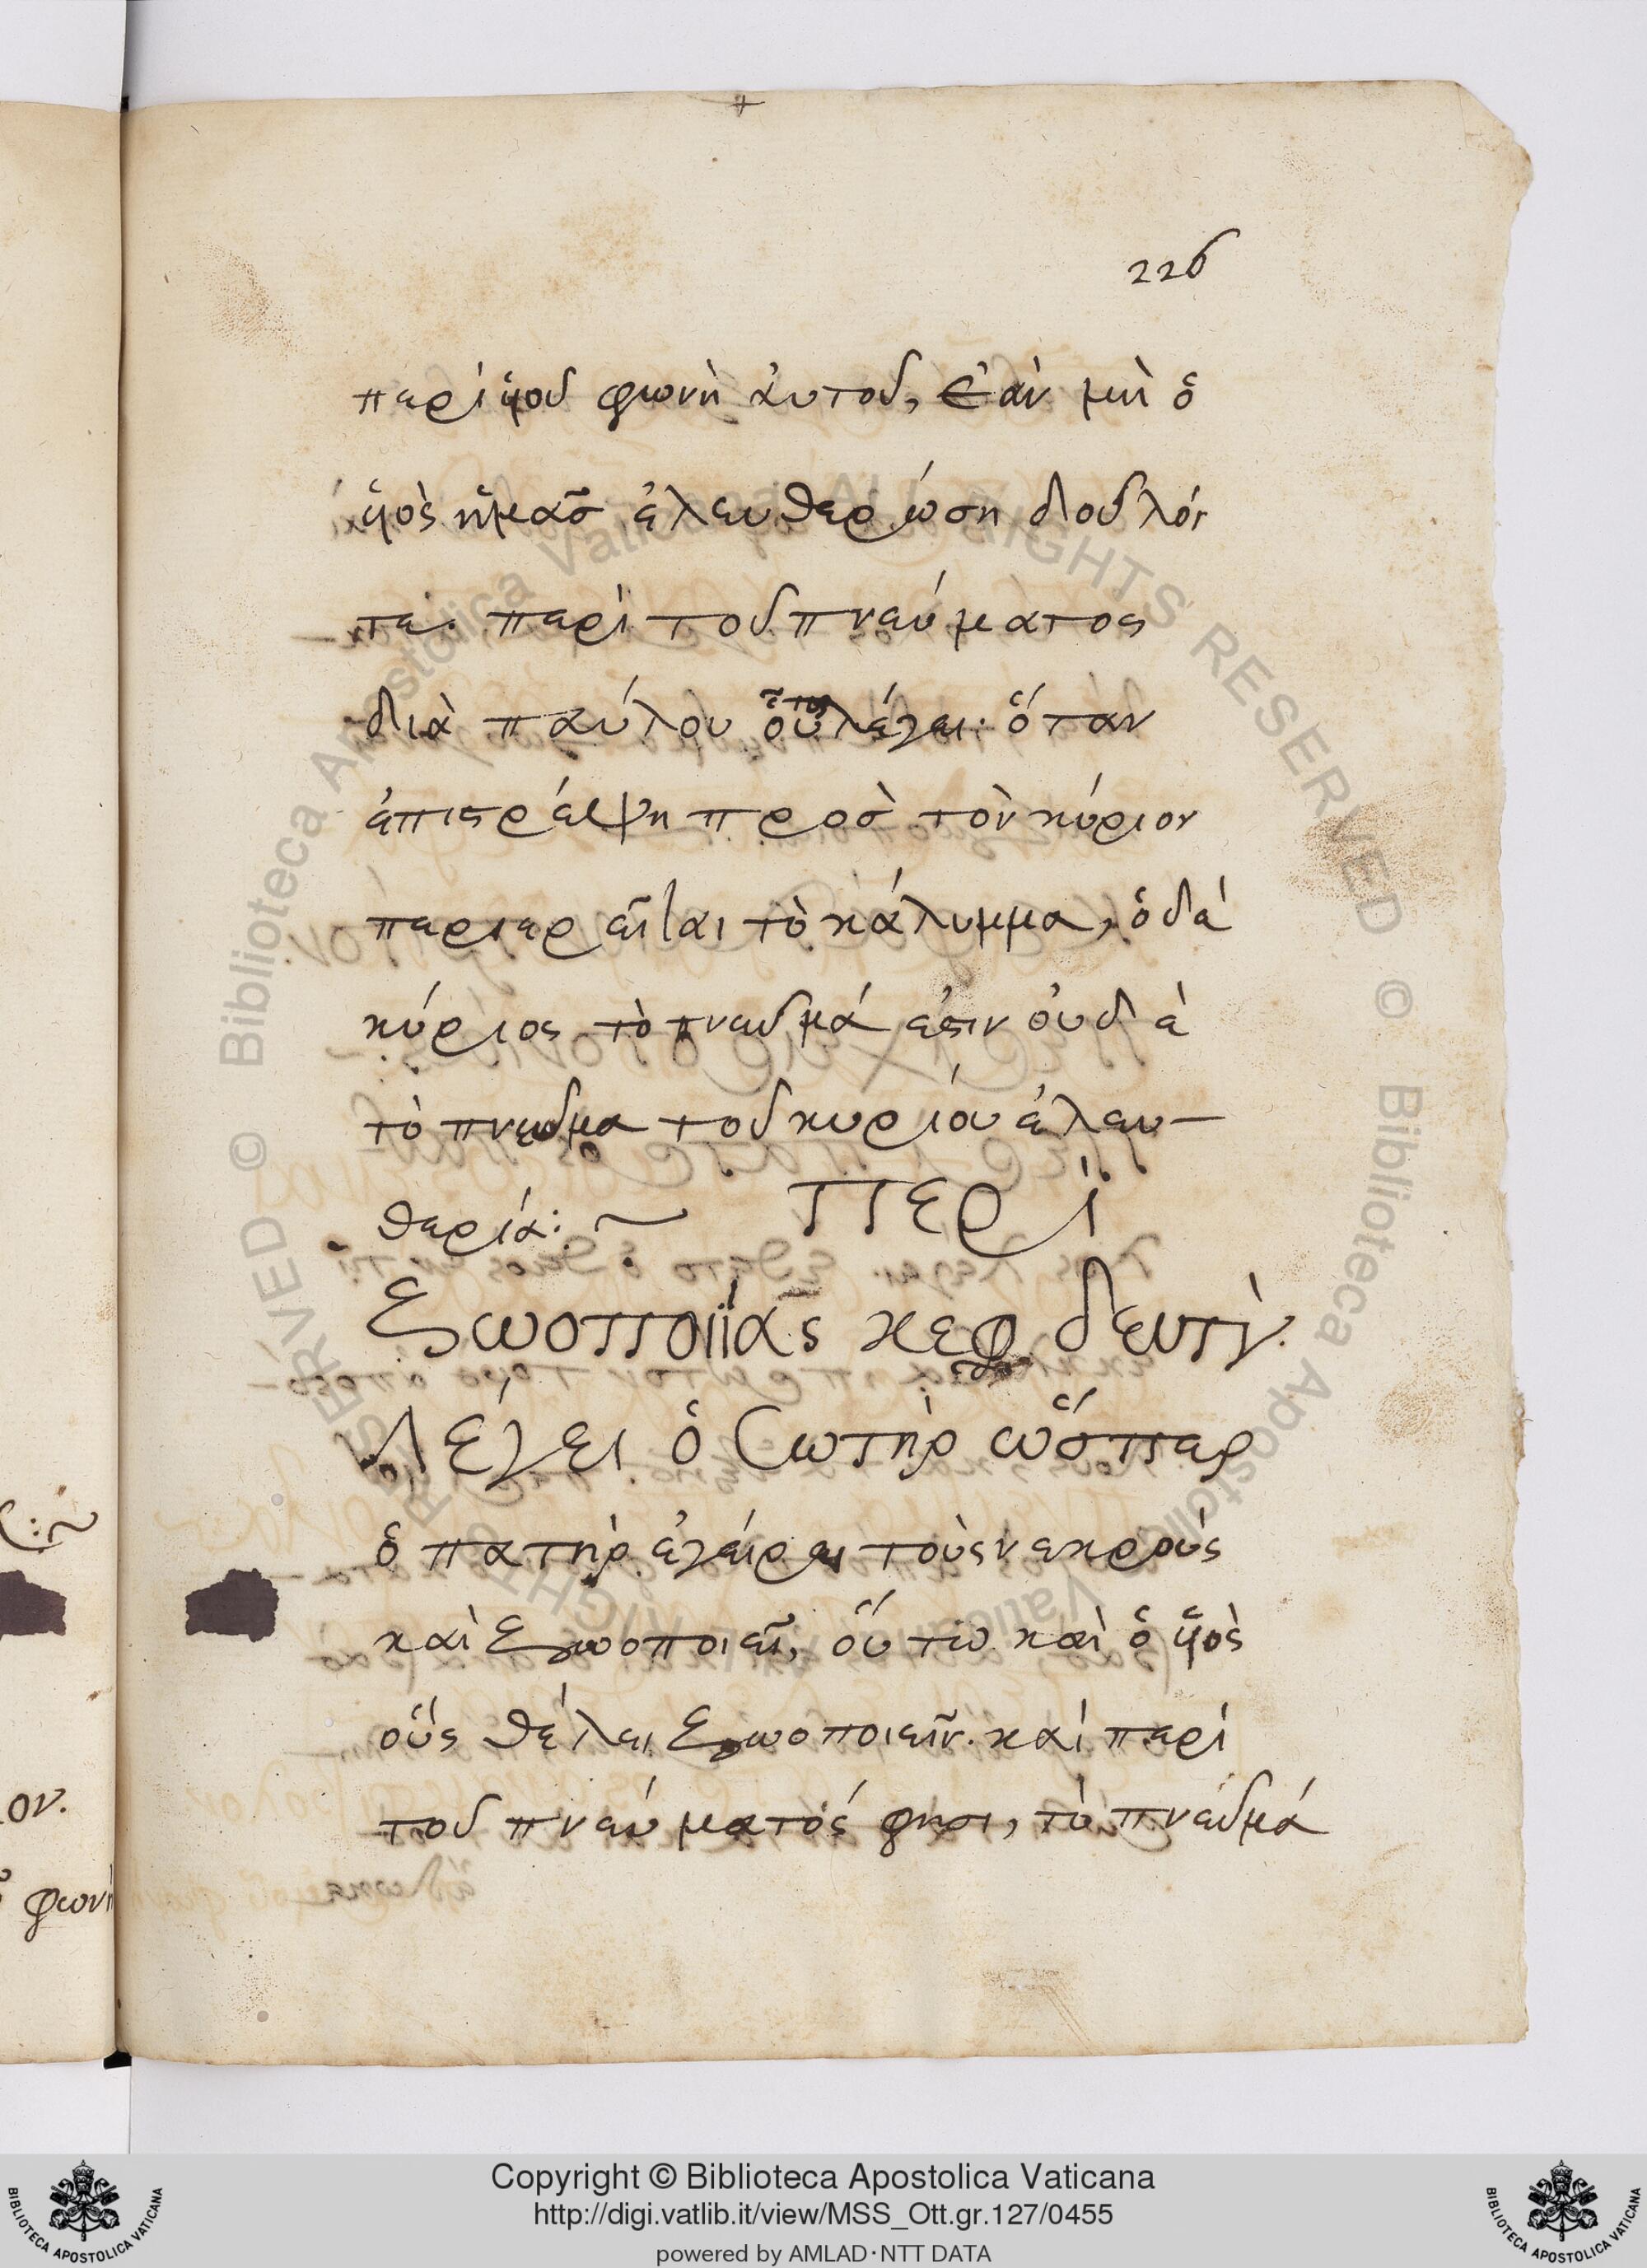 226
περὶ ὑιοῦ φωνὴ ἀυτοῦ, ἐὰν μὴ ὁ
ὑιὸς ἡμᾶσ ἐλευθερώση δοῦλόι
τε. περὶ τοῦ πνεύματος
διὰ παύλου οὕτω λέγει· ὅταν
ἐπιστρέψη προσ τὸν κύριον
περιερεῖται τὸ κάλυμμα, ὁ δὲ
κύριος τὸ πνεῦμά ἐστιν οὐ δὲ
τὸ πνεῦμα τοῦ κυρίου ἐλευ-
θερία:~ Περὶ
ζωοποιΐας κεφ δευτ
Λέγει ὁ Σωτὴρ ὥσπερ
ὁ πατὴρ ἐγείρει τοὺς νεκροὺς
καὶ ζωοποιεῖ, οὕτω καὶ ὁ ὑιὸς
οὓς θέλει ζωοποιεῖν. καὶ περὶ
τοῦ πνεύματός φησι, τὸ πνεῦμά
ον.
φωνὴ
© Biblioteca Apostolica Vaticana ALL RIGHTS RESERVED © Biblioteca Apostolica Vaticana ALL RIGHTS RESERVED
Copyright © Biblioteca Apostolica Vaticana
http://digi.vatlib.it/view/MSS_Ott.gr.127/0455
powered by AMLAD·NTT DATA
BIBLIOTECA APOSTOLICA VATICANA
BIBLIOTECA APOSTOLICA VATICANA